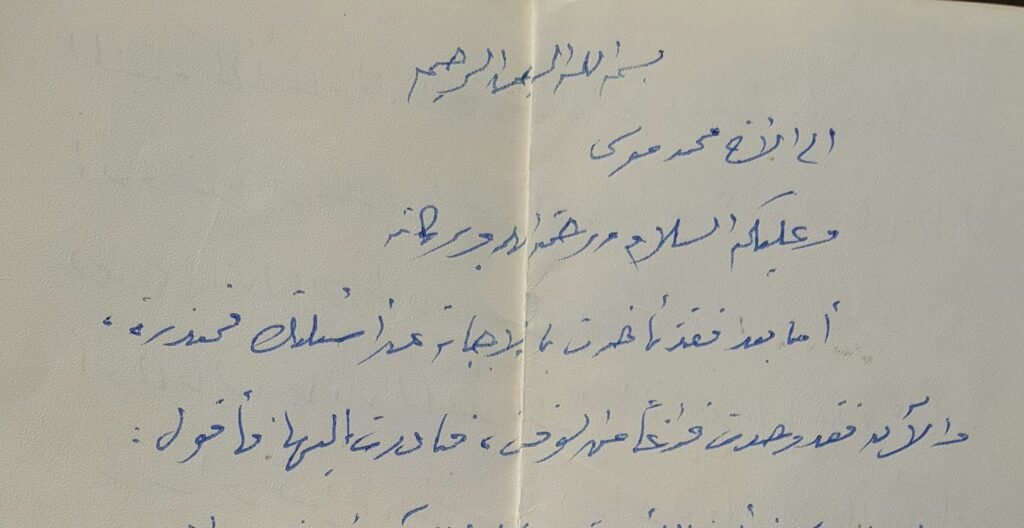 بسم الله الرحمن الرحيم
الى الأخ محمد موسى
وعليكم السلام ورحمة الله وبركاته
أما بعد فقد تأخرت بالإجابة عن أسئلتك فمعذرة ،
والآن فقد وجدت فراغاً من الوقت ، فبادرت إليها فأقول :